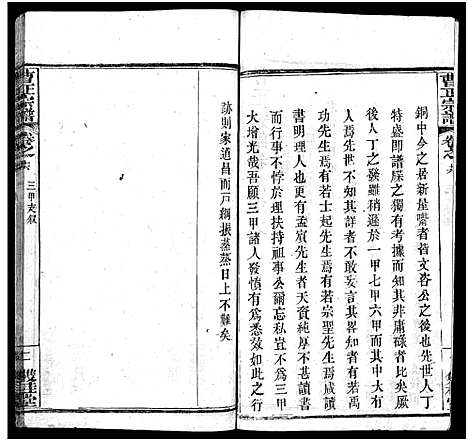 曹正宗譜
卷之六
銅中今之居新屋嘴者皆文咨公之後也先世人丁
特盛即譜牒之獨有考據而其非庸碌者比矣厥
後人丁之發雖稍遜於一甲七甲六甲而其中大有
人焉先世不知其詳者不敢妄言其切近者有若
功先生焉有若士起先生焉有若宗聖先生焉咸讀
書明理人也更有孟嬪先生者天資純厚不甚讀書
而行事一不悖於理扶持祖事公爾忘私豈不為三甲
大增光哉吾願三甲諸人發憤有為悉效如什
跡則家道昌而戶綱振蒸蒸日上不難矣
曹正宗譜
卷之六
三甲支叙
二
雙桂堂